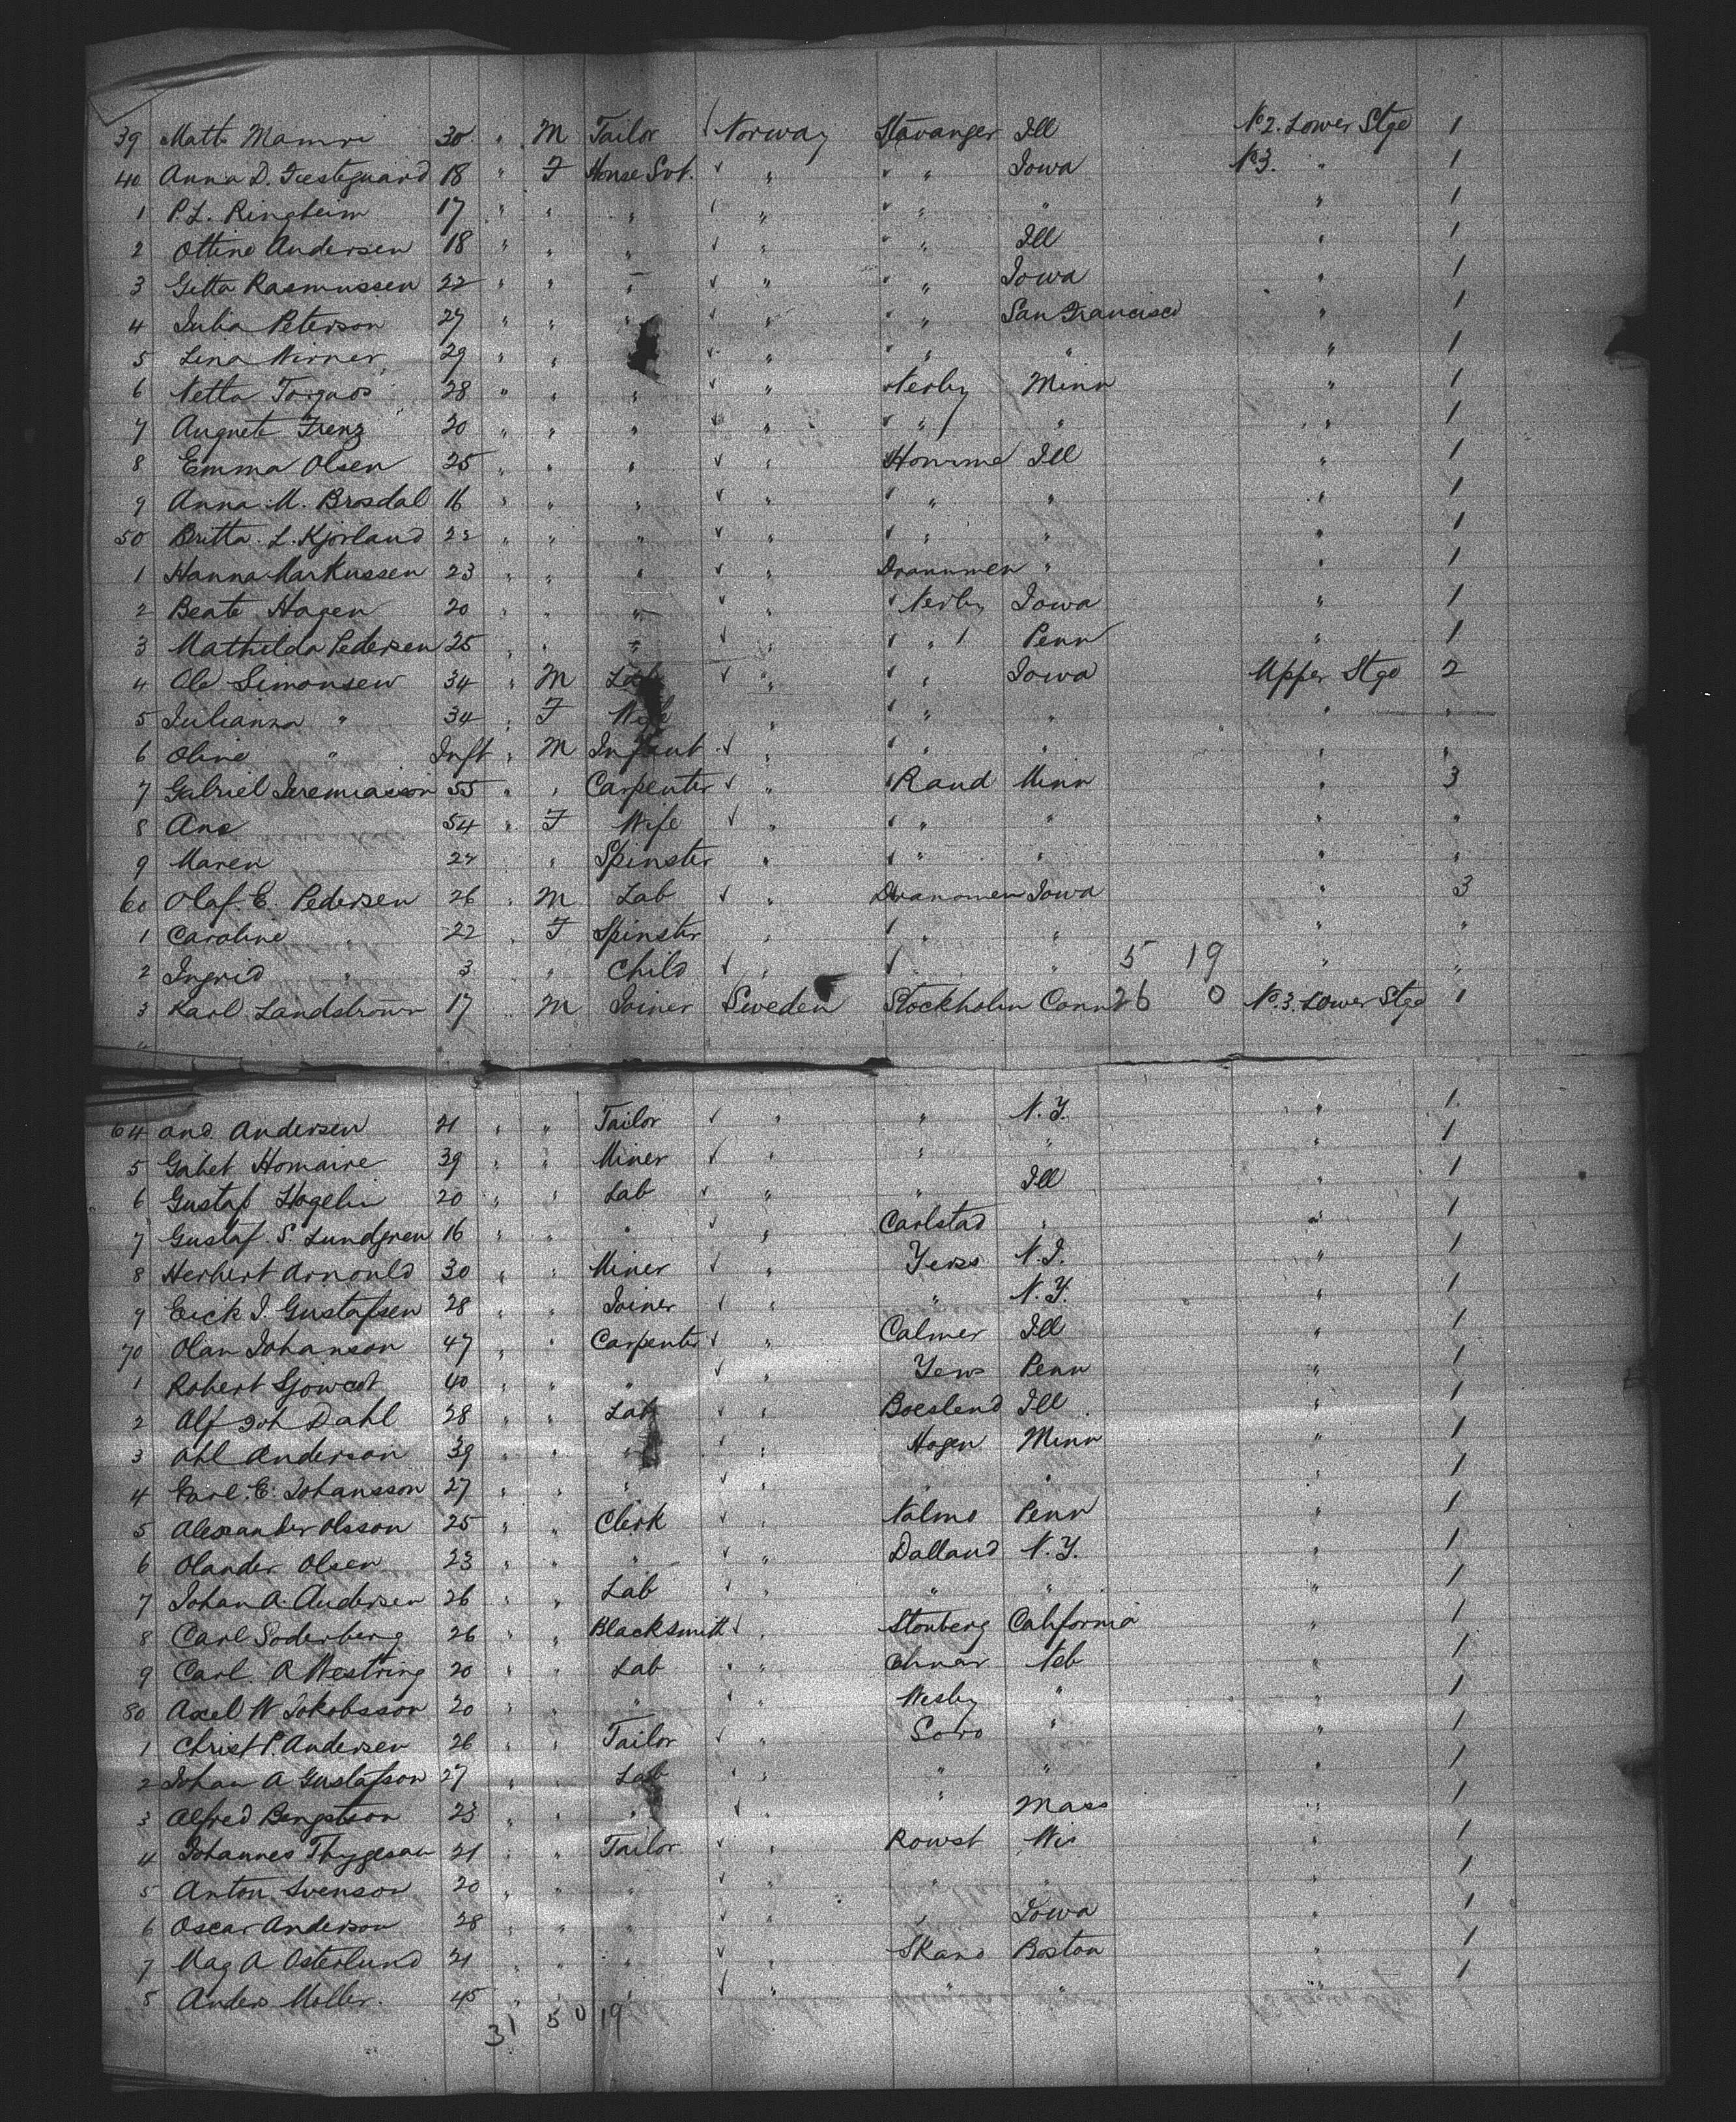 39 Matts Mamre 30 " M Tailor √ Norway Stavanger Ill No 2. Lower Stge 1
40 Anna D. 18 " F House Svt. √ " √ " Iowa No 3. " 1
1 P. L. Ringheim 17 " " " √ " √ " " " 1
2 Ottine Andersen 18 " " " √ " √ " Ill " 1
3 Gitta Rasmussen 22 " " " √ " √ " Iowa " 1
4 Julia Peterson 27 " " " √ " √ " San Francisco " 1
5 Lina 29 " " √ " √ " " " 1
6 Netta 28 " " " √ " Nerby Minn " 1
7 Augusta Frenz 20 " " " √ " √ " " " 1
8 Emma Olsen 25 " " " √ " Homme Ill " 1
9 Anna M. Brosdal 16 " " " √ " √ " " " 1
50 Britta L. Kjorland 22 " " " √ " √ " " " 1
1 Hanna Markussen 23 " " " √ " Drammen " " 1
2 Beate Hagen 20 " " " √ " √ Nerby Iowa " 1
3 Mathilda Pedersen 25 " " " √ " √ " Penn " 1
4 Ole Simonsen 34 " M Lab √ " √ " Iowa Upper Stge 2
5 Julianna " 34 " F Wife " √ " " " "
6 Oline " Inft " M Infant √ " √ " " " "
7 Gabriel Jeremiasson 55 " " Carpenter √ " √ Rand Minn " 3
8 Ane 54 " F Wife √ " √ " " " "
9 Maren 22 " Spinster " √ " " " "
60 Olaf. E. Pedersen 26 " M Lab √ " Drammen Iowa " 3
1 Caroline " 22 " F Spinster " √ " " " "
2 Ingrid " 3 " Child √ " √ " 5 19 " "
3 Karl Landstrom 17 " M Joiner Sweden Stockholm Conn 26 0 No. 3. Lower Stge 1
"
64 And. Andersen 21 " " Tailor √ " " N.Y. " 1
5 Gahet Homaire 39 " " Miner √ " " " " 1
6 Gustaf Hogelin 20 " " Lab √ " " Ill " 1
7 Gustaf. S. Lundgren 16 " " " √ " Carlstad " " 1
8 Herbert Arnould 30 " " Miner √ " N.J. " 1
9 Erick J. Gustafsen 28 " " Joiner √ " " N.Y. " 1
70 Olan Johanson 47 " " Carpenter √ " Calmer Ill " 1
1 Robert 40 " " " √ " Penn " 1
2 Alf Joh Dahl 28 " " Lab √ " Boeslend Ill " 1
3 Ahl Anderson 39 " " " √ " Hagen Minn " 1
4 Carl. E. Johansson 27 " " " √ " " " 1
5 Alexander Olsson 25 " " Clerk √ " Malmo Penn " 1
6 Olander Olsen 23 " " " √ " Dalland N.Y. " 1
7 Johan A. Andersen 26 " " Lab √ " " " " 1
8 Carl Soderberg 26 " " Blacksmith √ " Stonberg California " 1
9 Carl A Westring 20 " " Lab " " Neb " 1
80 Axel W Jakobsson 20 " " " √ " Wesby " " 1
1 Christ P. Andersen 26 " " Tailor √ " Soro " " 1
2 Johan A Gustafson 27 " " Lab " " " " " 1
3 Alfred Bengtson 23 " " " √ " " Mass " 1
4 Johannes Thygesan 21 " " Tailor √ " Rowst Wis " 1
5 Anton Svenson 20 " " " √ " " " " 1
6 Oscar Anderson 28 " " " √ " " Iowa " 1
7 Mag A Osterlund 21 " " " √ " Skano Boston " 1
8 Anders Moller 45 " " " √ " " " " 1
31 5 0 19